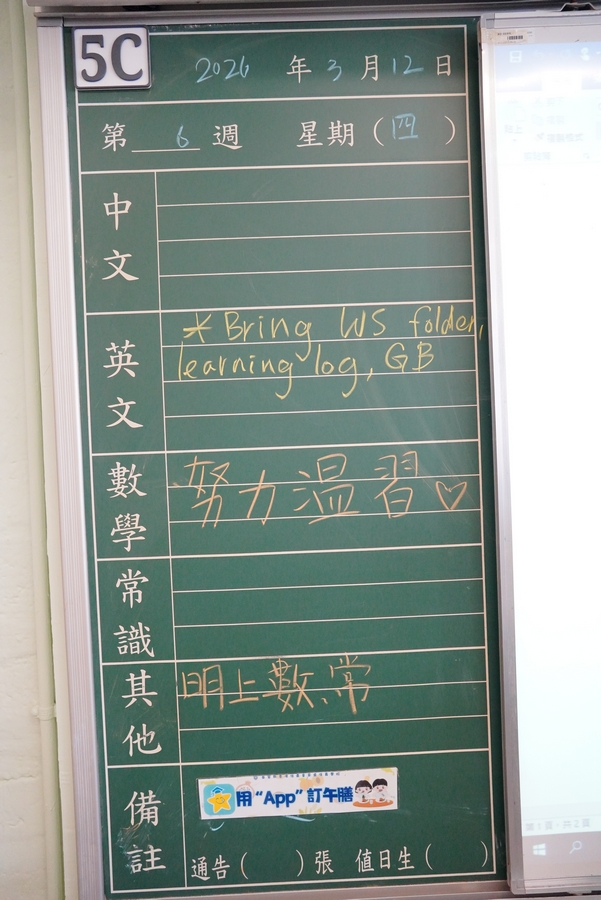 5C
2026 年 3 月 12 日
第 6 週 星期（四）
中文
英文
* Bring WS folder,
learning log, GB
數學
努力温習♡
常識
其他
明上數、常
備註
用“App”訂午膳
通告（ ）張 值日生（ ）